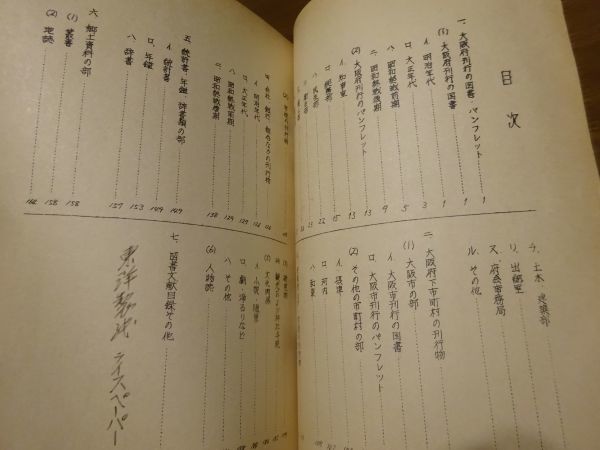 目次
一、大阪府刊行の図書、パンフレット 1
(1) 大阪府刊行の図書 1
イ、明治年代 3
ロ、大正年代 5
ハ、昭和終戦前期 9
ニ、昭和終戦後期 13
(2) 大阪府刊行のパンフレット 13
イ、知事室 15
ロ、総務部 22
ハ、民生部
ヲ、土木、建築部
リ、出納室
ヌ、府会事務局
ル、その他
二、大阪府下市町村の刊行物
(1) 大阪市の部
イ、大阪市刊行の図書
ロ、大阪市刊行のパンフレット
(2) その他の市町村の部
イ、摂津
ロ、河内
ハ、和泉
イ、明治年代
ロ、大正年代
ハ、昭和終戦前期 129
ニ、昭和終戦後期 138
五、統計書、年鑑、辞書類の部 149
イ、統計書 149
ロ、年鑑 153
ハ、辞書 157
六、郷土資料の部
(1) 叢書 158
(2) 地誌 158
162
イ、小説、随筆
ロ、劇、浄るりなど
ハ、その他
(6) 人物誌
七、図書文献目録その他
東洋製紙
ライスペーパー